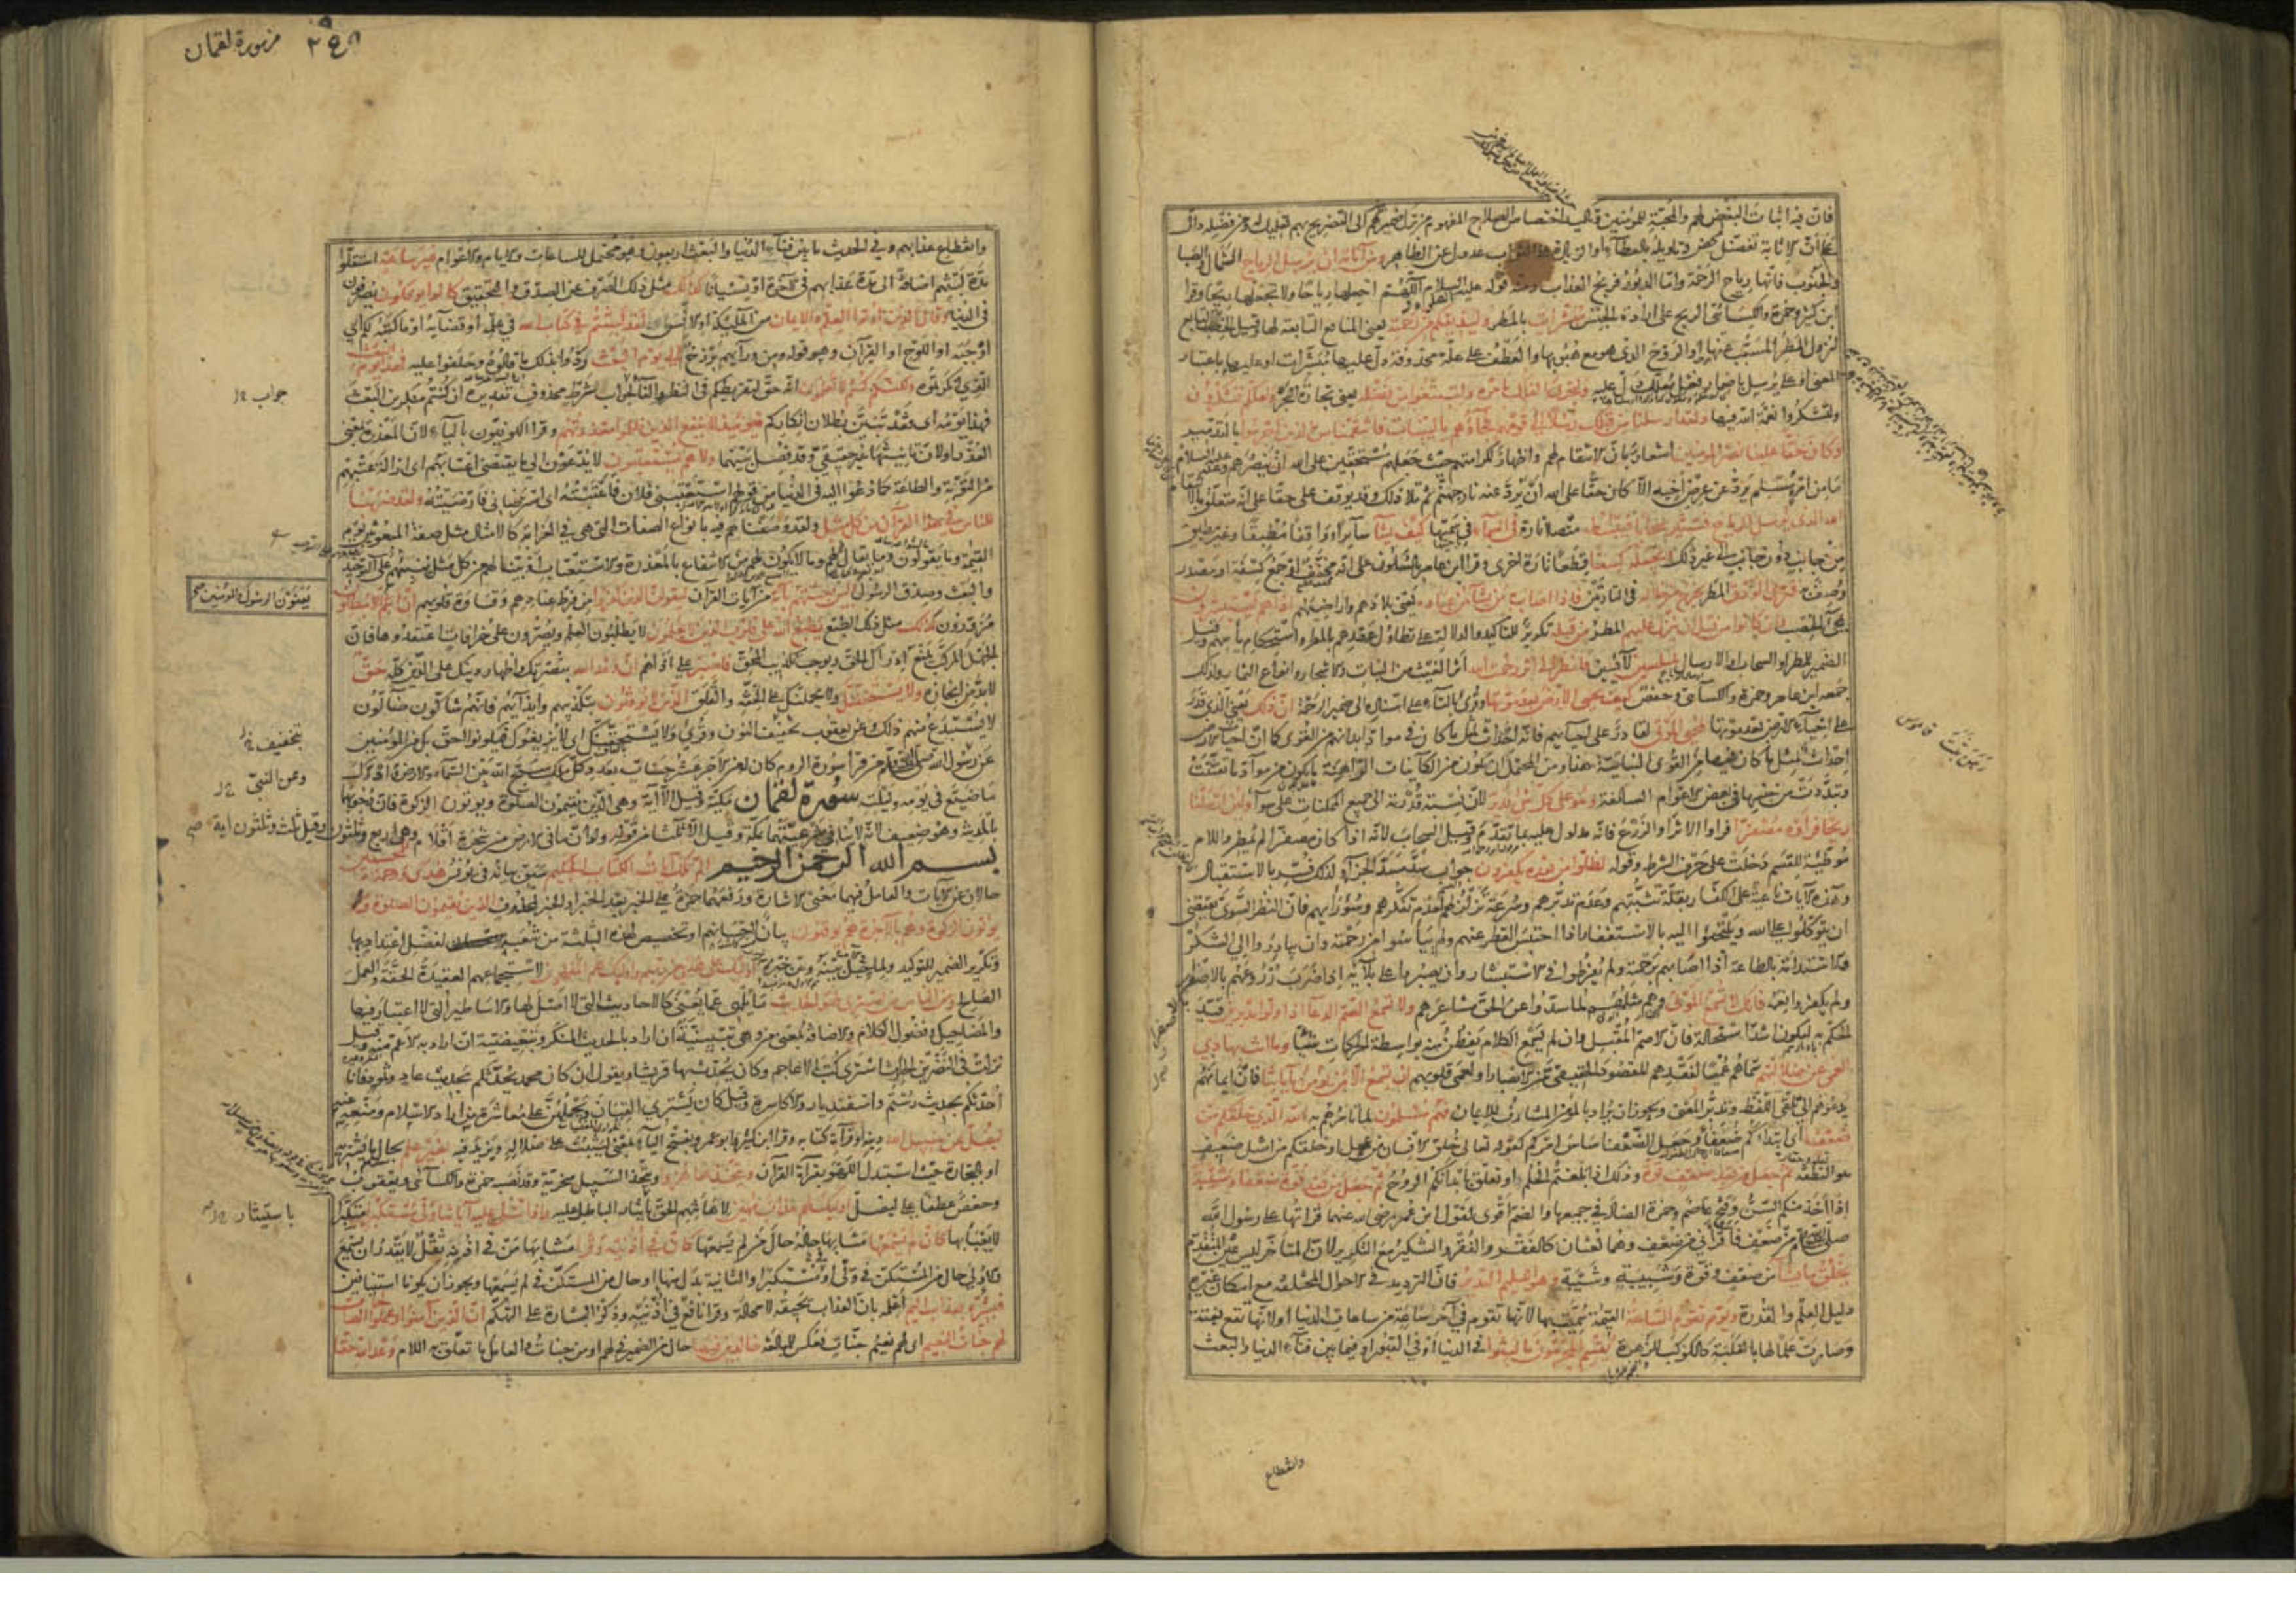 فان فيه اثبات البغض لهم والمحبة للمؤمنين وتأكيد اختصاص الصلاح المفهوم من ترك ضميرهم الى التصريح بهم تعليل له ومن فضله دال
على ان الاثابة تفضل محض وتأويله بالعطاء او الزيادة على الثواب عدول عن الظاهر ومن آياته ان يرسل الرياح الشمال والصبا
والجنوب فانها رياح الرحمة واما الدبور فريح العذاب ومنه قوله عليه السلام اللهم اجعلها رياحا ولا تجعلها ريحا وقرا
ابن كثير وحمزة والكسائي الريح على ارادة الجنس مبشرات بالمطر وليذيقكم من رحمته يعني المنافع التابعة لها وقيل الخصب التابع
لنزول المطر المسبب عنها او الروح الذي هو مع هبوبها والعطف على علة محذوفة دل عليها مبشرات او عليها باعتبار
المعنى او على يرسل باضمار فعل معلل دل عليه ولتجري الفلك بامره ولتبتغوا من فضله يعني تجارة البحر ولعلكم تشكرون
ولتشكروا نعمة الله فيها ولقد ارسلنا من قبلك رسلا الى قومهم فجاؤهم بالبينات فانتقمنا من الذين اجرموا بالتدمير
وكان حقا علينا نصر المؤمنين اشعار بان الانتقام لهم واظهار لكرامتهم حيث جعلهم مستحقين على الله ان ينصرهم وعنه عليه السلام
ما من امرئ مسلم يرد عن عرض اخيه الا كان حقا على الله ان يرد عنه نار جهنم ثم تلا ذلك وقد يوقف على حقا على انه متعلق بالانتقام
الله الذي يرسل الرياح فتثير سحابا فيبسطه متصلا تارة في السماء في سمتها كيف يشا سائرا و واقفا مطبقا وغير مطبق
من جانب دون جانب الى غير ذلك ويجعله كسفا قطعا تارة اخرى وقرا ابن عامر بالسكون على انه مخفف او جمع كسفة او مصدر
وصف به فترى الودق المطر يخرج من خلاله في التارتين فاذا اصاب به من يشاء من عباده يعني بلادهم واراضيهم اذا هم يستبشرون
بمجئ الخصب وان كانوا من قبل ان ينزل عليهم المطر من قبله تكرير للتأكيد والدلالة على تطاول عهدهم بالمطر واستحكام يأسهم وقيل
الضمير للمطر او السحاب او الارسال لمبلسين لآئسين فانظر الى اثر رحمت الله اثر الغيث من النبات والاشجار وانواع الثمار ولذلك
جمعه ابن عامر وحمزة والكسائي وحفص كيف يحيي الارض بعد موتها وقرئ بالتاء على اسناده الى ضمير الرحمة ان ذلك يعني الذي قدر
على احياء الارض بعد موتها لمحيي الموتى لقادر على احيائهم فانه احداث لمثل ما كان في مواد ابدانهم من القوى كما ان احياء الارض
احداث لمثل ما كان فيها من القوى النباتية هذا ومن المحتمل ان يكون من الكائنات الراهنة ما يكون من مواد ما تفتتت
وتبددت من جنسها في بعض الاعوام السالفة وهو على كل شئ قدير لان نسبة قدرته الى جميع الممكنات على سواء ولئن ارسلنا
ريحا فراوه مصفرا فراوا الاثر او الزرع فانه مدلول عليه بما تقدم وقيل السحاب لانه اذا كان مصفرا لم يمطر واللام
موطئة للقسم دخلت على حرف الشرط وقوله لظلوا من بعده يكفرون جواب سد مسد الجزاء ولذلك فسر بالاستقبال
وهذه الايات ناعية على الكفار بقلة تثبتهم وعدم تدبرهم وسرعة تزلزلهم لعدم تفكرهم وسوء رأيهم فان النظر السوي يقتضي
ان يتوكلوا على الله ويلتجئوا اليه بالاستغفار اذا احتبس القطر عنهم ولم ييأسوا من رحمته وان يبادروا الى الشكر
والاستدامة بالطاعة اذا اصابهم برحمته ولم يفرطوا في الاستبشار وان يصبروا على بلائه اذا ضرب زروعهم بالاصفرار
ولم يكفروا نعمه فانك لا تسمع الموتى وهم مثلهم لما سدوا عن الحق مشاعرهم ولا تسمع الصم الدعاء اذا ولوا مدبرين قيد
الحكم به ليكون اشد استحالة فان الاصم المقبل وان لم يسمع الكلام يفطن منه بواسطة الحركات شيئا وما انت بهادي
العمي عن ضلالتهم سماهم عميا لفقدهم المقصود الحقيقي من الابصار او لعمى قلوبهم ان تسمع الا من يؤمن بآياتنا فان ايمانهم
يدعوهم الى تلقي اللفظ وتدبر المعنى ويجوز ان يراد بالمؤمن المشارف للايمان فهم مسلمون لما تأمرهم به الله الذي خلقكم من
ضعف اي ابتداءكم ضعفاء وجعل الضعف اساس امركم كقوله تعالى خلق الانسان من عجل او خلقكم من اصل ضعيف
هو النطفة ثم جعل من بعد ضعف قوة وذلك اذا بلغتم الحلم او تعلق بابدانكم الروح ثم جعل من بعد قوة ضعفا وشيبة
اذا اخذ منكم السن وفتح عاصم وحمزة الضاد في جميعها والضم اقوى لقول ابن عمر رضي الله عنهما قراتها على رسول الله
صلى الله عليه وسلم من ضعف فاقرأني من ضعف وهما لغتان كالفقر والفقر والتنكير مع التكرير لان المتاخر ليس عين المتقدم
يخلق ما يشاء من ضعف وقوة وشبيبة وشيبة وهو العليم القدير فان الترديد في الاحوال المختلفة مع امكان غيره
دليل العلم والقدرة ويوم تقوم الساعة القيمة سميت بها لانها تقوم في آخر ساعة من ساعات الدنيا او لانها تقع بغتة
وصارت علما لها بالغلبة كالكوكب للزهرة يقسم المجرمون ما لبثوا في الدنيا او في القبور او فيما بين فناء الدنيا والبعث
وانقطاع
من سورة لقمان
وانقطاع عذابهم وفي الحديث ما بين فناء الدنيا والبعث اربعون وهو محتمل للساعات والايام والاعوام غير ساعة استقلوا
مدة لبثهم اضافة الى مدة عذابهم في الآخرة او نسيانا كذلك مثل ذلك الصرف عن الصدق والتحقيق كانوا يؤفكون يصرفون
في الدنيا وقال الذين اوتوا العلم والايمان من الملئكة او الانس لقد لبثتم في كتاب الله في علمه او قضائه او ما كتبه لكم اي
اوجبه او اللوح او القرآن وهو قوله ومن ورائهم برزخ الى يوم البعث ردوا بذلك ما قالوه وحلفوا عليه فهذا يوم البعث
الذي انكرتموه ولكنكم كنتم لا تعلمون انه حق لتفريطكم في النظر والفاء لجواب شرط محذوف تقديره ان كنتم منكرين البعث
فهذا يومه اي فقد تبين بطلان انكاركم فيومئذ لا ينفع الذين ظلموا معذرتهم وقرا الكوفيون بالياء لان المعذرة بمعنى
العذر او لان تأنيثها غير حقيقي وقد فصل بينهما ولا هم يستعتبون لا يدعون الى ما يقتضي اعتابهم اي ازالة عتبهم
من التوبة والطاعة كما دعوا اليه في الدنيا من قولهم استعتبني فلان فاعتبته اي استرضاني فارضيته ولقد ضربنا
للناس في هذا القرآن من كل مثل ولقد وصفناهم فيه بانواع الصفات التي هي في الغرابة كالامثال مثل صفة المبعوثين يوم
القيمة وما يقولون وما يقال لهم وما لا يكون لهم من الانتفاع بالمعذرة والاستعتاب او بينا لهم من كل مثل ينبئهم على التوحيد
والبعث وصدق الرسول ولئن جئتهم بآية من آيات القرآن ليقولن الذين كفروا من فرط عنادهم وقساوة قلوبهم ان انتم الا مبطلون
يعنون الرسول والمؤمنين صح
مزورون كذلك مثل ذلك الطبع يطبع الله على قلوب الذين لا يعلمون لا يطلبون العلم ويصرون على خرافات اعتقدوها فان
الجهل المركب يمنع ادراك الحق ويوجب تكذيب المحق فاصبر على اذاهم ان وعد الله بنصرتك واظهار دينك على الدين كله حق
لا بد من انجازه ولا يستخفنك ولا يحملنك على الخفة والقلق الذين لا يوقنون بتكذيبهم وايذائهم فانهم شاكون ضالون
لا يستبدع منهم ذلك وعن يعقوب بتخفيف النون وقرئ ولا يستحقنك اي لا يزيغنك فيكونوا احق بك من المؤمنين
عن رسول الله صلى الله عليه وسلم من قرا سورة الروم كان له من الاجر عشر حسنات بعدد كل ملك سبح الله بين السماء والارض وادرك
ما ضيع في يومه وليلته سورة لقمان مكية وقيل الا آية وهي الذين يقيمون الصلوة ويؤتون الزكوة فان وجوبهما
بالمدينة وهو ضعيف لانه لا ينافي شرعيتهما بمكة وقيل الا ثلثا من قوله ولو ان ما في الارض من شجرة اقلام وهي اربع وثلثون وقيل ثلث وثلثون آية صح
بسم الله الرحمن الرحيم الم تلك آيات الكتاب الحكيم سبق بيانه في يونس هدى ورحمة للمحسنين
حالان من الايات والعامل فيهما معنى الاشارة ورفعهما حمزة على الخبر بعد الخبر او الخبر لمحذوف الذين يقيمون الصلوة و
يؤتون الزكوة وهم بالآخرة هم يوقنون بيان لاحسانهم او تخصيص لهذه الثلثة من شعبه لفضل اعتداد بها
وتكرير الضمير للتوكيد ولما حيل بينه وبين خبره اولئك على هدى من ربهم واولئك هم المفلحون لاستجماعهم العقيدة الحقة والعمل
الصالح ومن الناس من يشتري لهو الحديث ما يلهي عما يعني كالاحاديث التي لا اصل لها والاساطير التي لا اعتبار فيها
والمضاحيك وفضول الكلام والاضافة بمعنى من وهي تبيينية ان اراد بالحديث المنكر وتبعيضية ان اراد به الاعم منه وقيل
نزلت في النضر بن الحارث اشترى كتب الاعاجم وكان يحدث بها قريشا ويقول ان كان محمد يحدثكم بحديث عاد وثمود فانا
احدثكم بحديث رستم واسفنديار والاكاسرة وقيل كان يشتري القيان ويحملهن على معاشرة من اراد الاسلام ومنعه عنه
ليضل عن سبيل الله دينه او قراءة كتابه وقرا ابن كثير وابو عمرو بفتح الياء بمعنى ليثبت على ضلاله ويزيد فيه بغير علم بحال ما يشتريه
او بالتجارة حيث استبدل اللهو بقراءة القرآن ويتخذها هزوا ويتخذ السبيل سخرية وقد نصبه حمزة والكسائي ويعقوب
وحفص عطفا على ليضل اولئك لهم عذاب مهين لاهانتهم الحق باستيثار الباطل عليه واذا تتلى عليه آياتنا ولى مستكبرا متكبرا
لا يعبأ بها كان لم يسمعها مشابها حاله حال من لم يسمعها كان في اذنيه وقرا مشابها من في اذنيه ثقل لا يقدر ان يسمع
والاولى حال من المستكن في ولى او مستكبرا والثانية بدل منها او حال من المستكن في لم يسمعها ويجوز ان يكونا استينافين
فبشره بعذاب اليم اعلمه بان العذاب يحيقه لا محالة وقرا نافع في اذنيه وذكر البشارة على التهكم ان الذين آمنوا وعملوا الصالحات
لهم جنات النعيم اي لهم نعيم جنات فعكس للمبالغة خالدين فيها حال من الضمير في لهم او من جنات والعامل ما تعلق به اللام وعد الله حقا